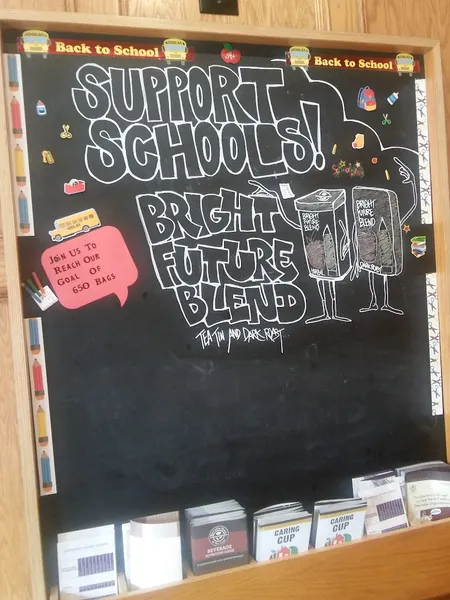 Back to School
Back to School
SUPPORT
SCHOOLS!
BRIGHT
FUTURE
BLEND
TEA TIN AND DARK ROAST
BRIGHT
FUTURE
BLEND
BRIGHT
FUTURE
BLEND
DARK ROAST
JOIN US TO
REACH OUR
GOAL OF
650 BAGS
BEVERAGE
CARING
CUP
CARING
CUP